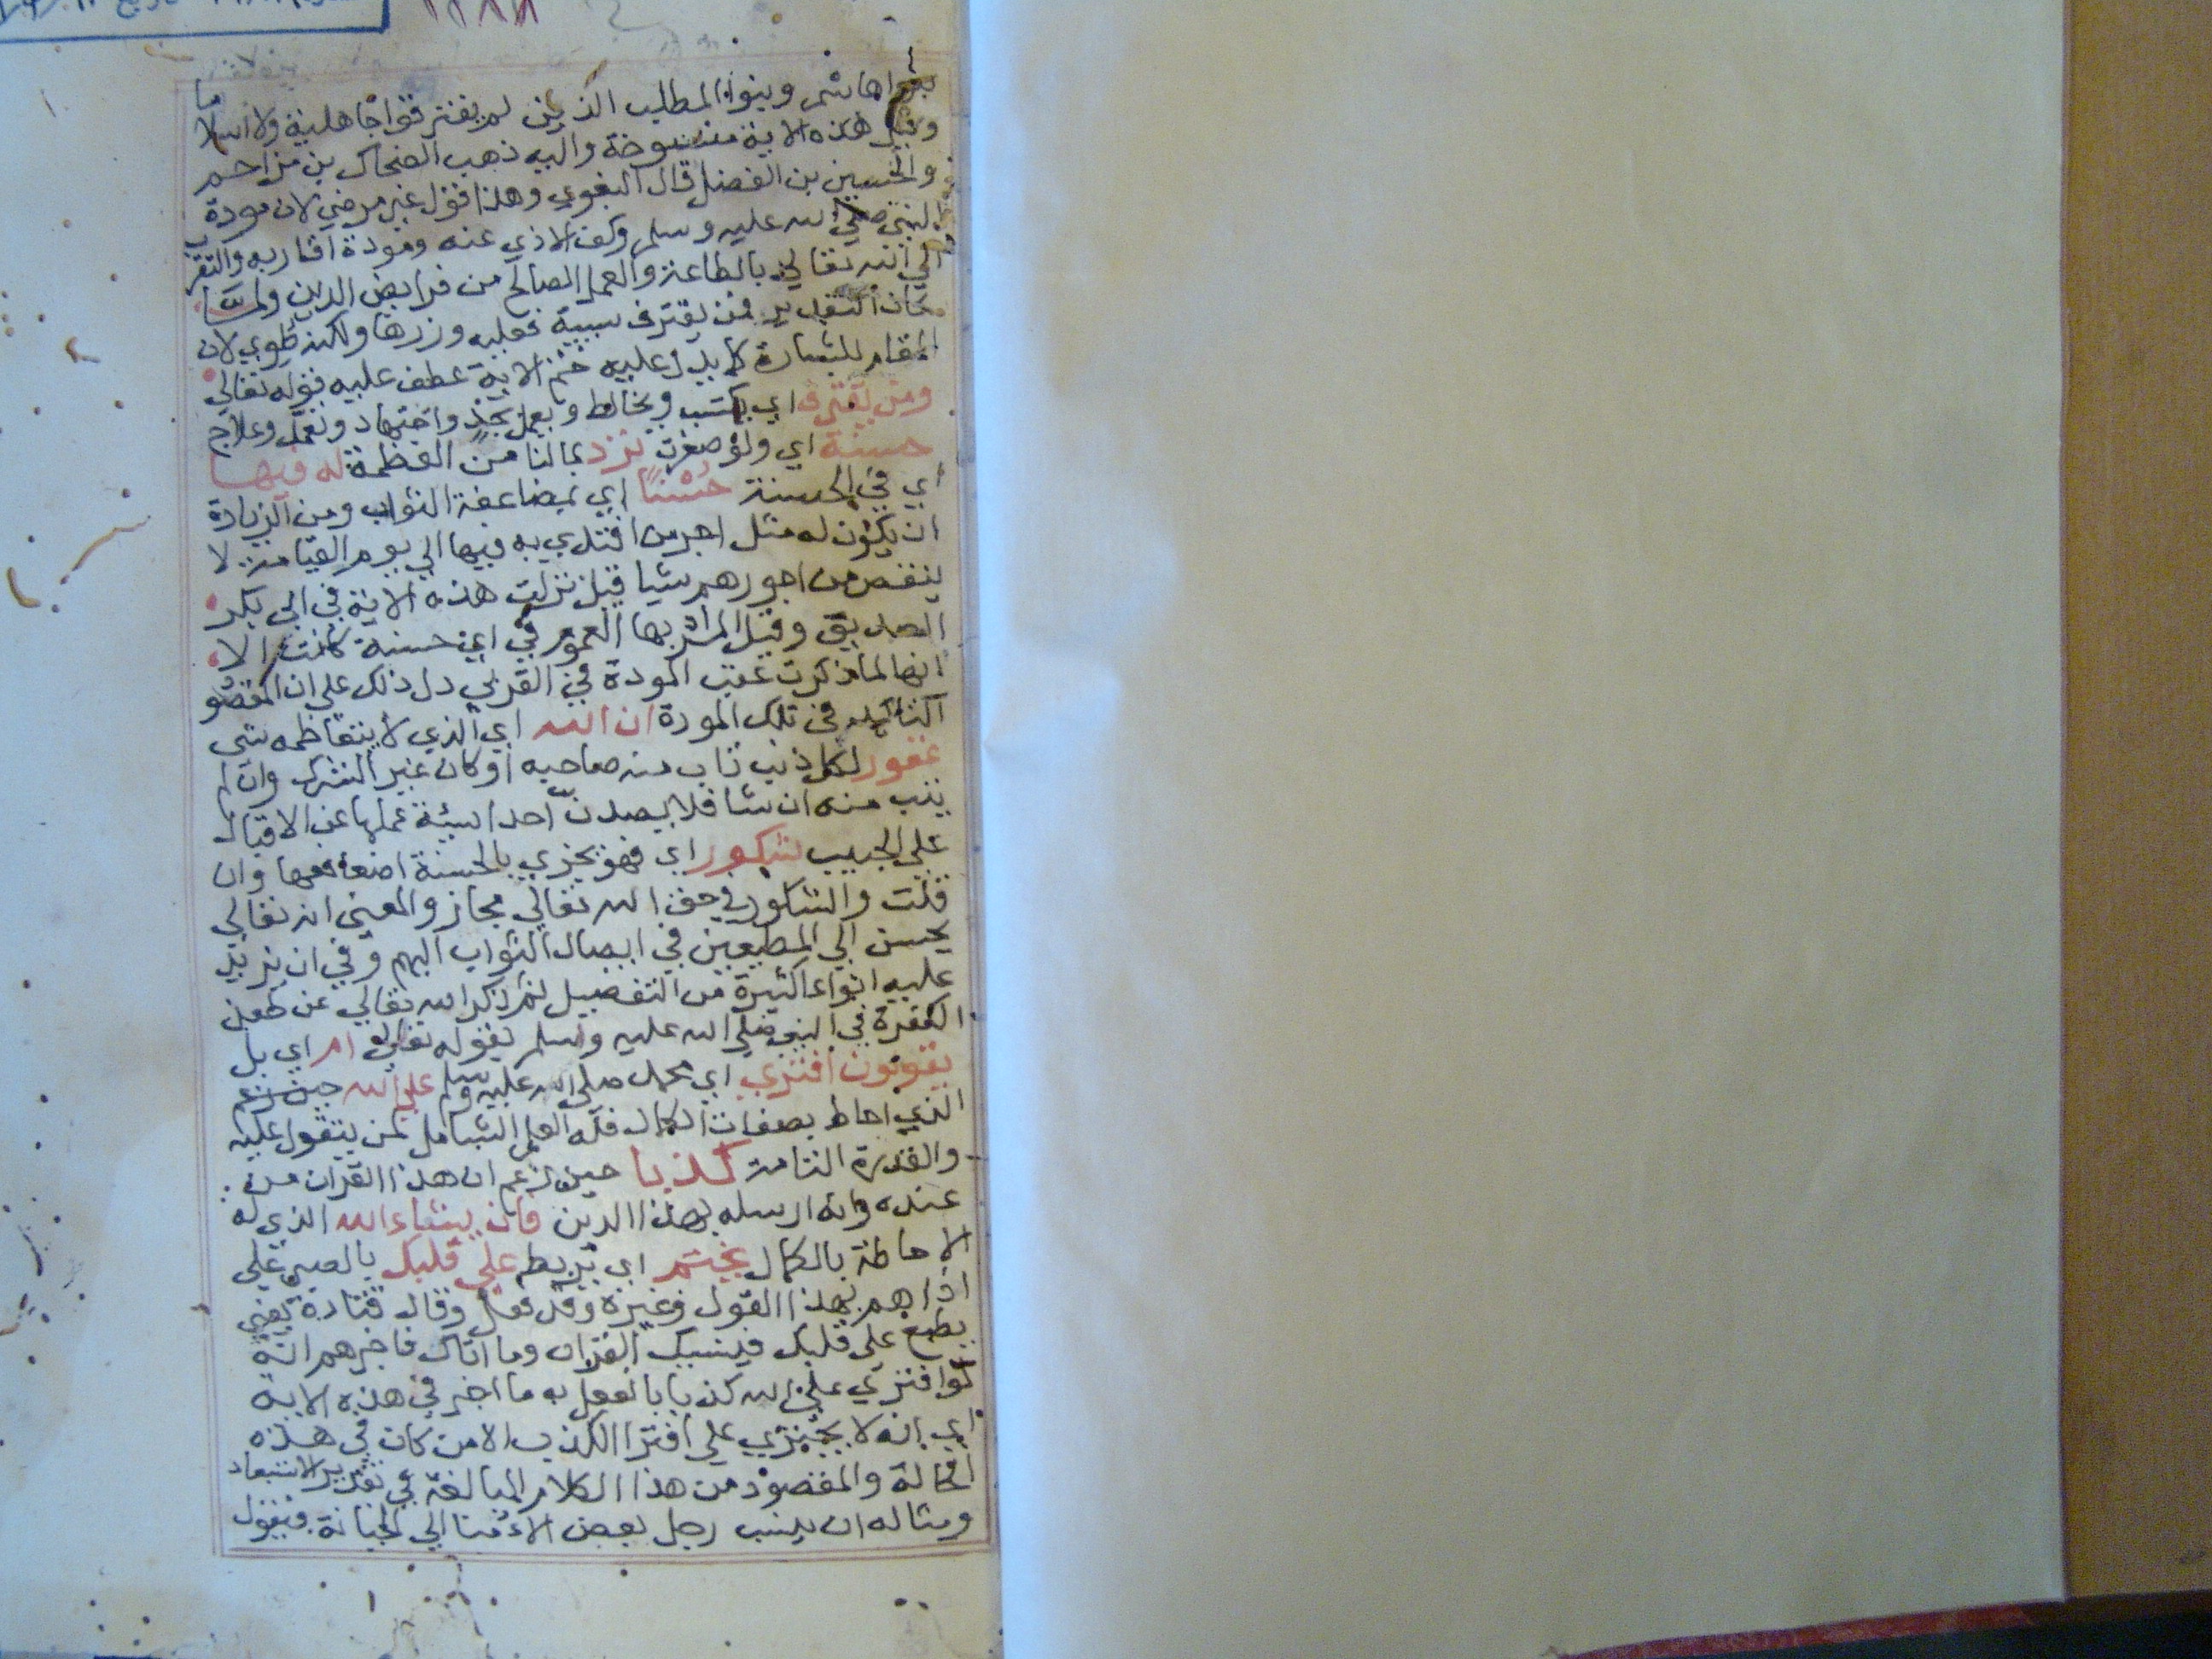 بنوا هاشم وبنوا المطلب الذين لم يفترقوا جاهلية ولا اسلاما
وقيل هذه الاية منسوخة واليه ذهب الضحاك بن مزاحم
والحسين بن الفضل قال البغوي وهذا قول غير مرضي لان مودة
النبي صلي الله عليه وسلم وكف الاذي عنه ومودة اقاربه والتقرب
الي الله تعالي بالطاعة والعمل الصالح من فرايض الدين ولمّا
كان التقدير فمن يقترف سيية فعليه وزرها ولكنه طوي لان
المقام للبشارة كما يدل عليه ختم الاية عطف عليه قوله تعالي
ومن يقترف اي يكتسب ويخالط ويعمل بجد واجتهاد وتعمل وعلاج
حسنة اي ولو صغرت نزد بمالنا من العظمة له فيها
اي في الحسنة حسنًا اي بمضاعفة الثواب ومن الزيادة
ان يكون له مثل اجر من اقتدي به فيها الي يوم القيامة لا
ينقص من اجورهم شيا قيل نزلت هذه الاية في ابي بكر
الصديق وقيل المراد بها العموم في اي حسنة كانت الا
انها لما ذكرت عقب المودة في القربي دل ذلك علي ان المقصو
التاكيد في تلك المودة ان الله اي الذي لا يتعاظمه شي
غفور لكل ذنب تاب منه صاحبه او كان غير الشرك وان لم
يتب منه ان شا فلا يصدن احدا سيئة عملها عن الاقبال
علي الحبيب شكور اي فهو يجزي بالحسنة اضعافها وان
قلت والشكور في حق الله تعالي مجاز والمعني انه تعالي
يحسن الي المطيعين في ايصال الثواب اليهم وفي ان يزيد
عليه انواعا كثيرة من التفضيل ثم ذكر الله تعالي عن طعن
الكفرة في النبي صلي الله عليه وسلم بقوله تعالي ام اي بل
يقولون افتري اي محمد صلي الله عليه وسلم علي الله حين زعم
الذي احاط بصفات الكمال فله العلم الشامل بمن يتقول عليه
والقدرة التامة كذبا حين زعم ان هذا القران من
عنده وانه ارسله بهذا الدين فان يشاء الله الذي له
الاحاطة بالكمال يختم اي يربط علي قلبك بالصبر علي
اذاهم بهذا القول وغيره وقد فعل وقال قتادة يعني
يطبع علي قلبك فينسيك القران وما اتاك فاخبرهم انه
لو افتري علي الله كذبا بالفعل به ما اخبر في هذه الاية
اي انه لا يجتري علي افترا الكذب الا من كان في هذه
الحالة والمقصود من هذا الكلام المبالغة في تقرير الاستبعاد
ومثاله ان ينسب رجل بعض الامنا الي الخيانة فيقول